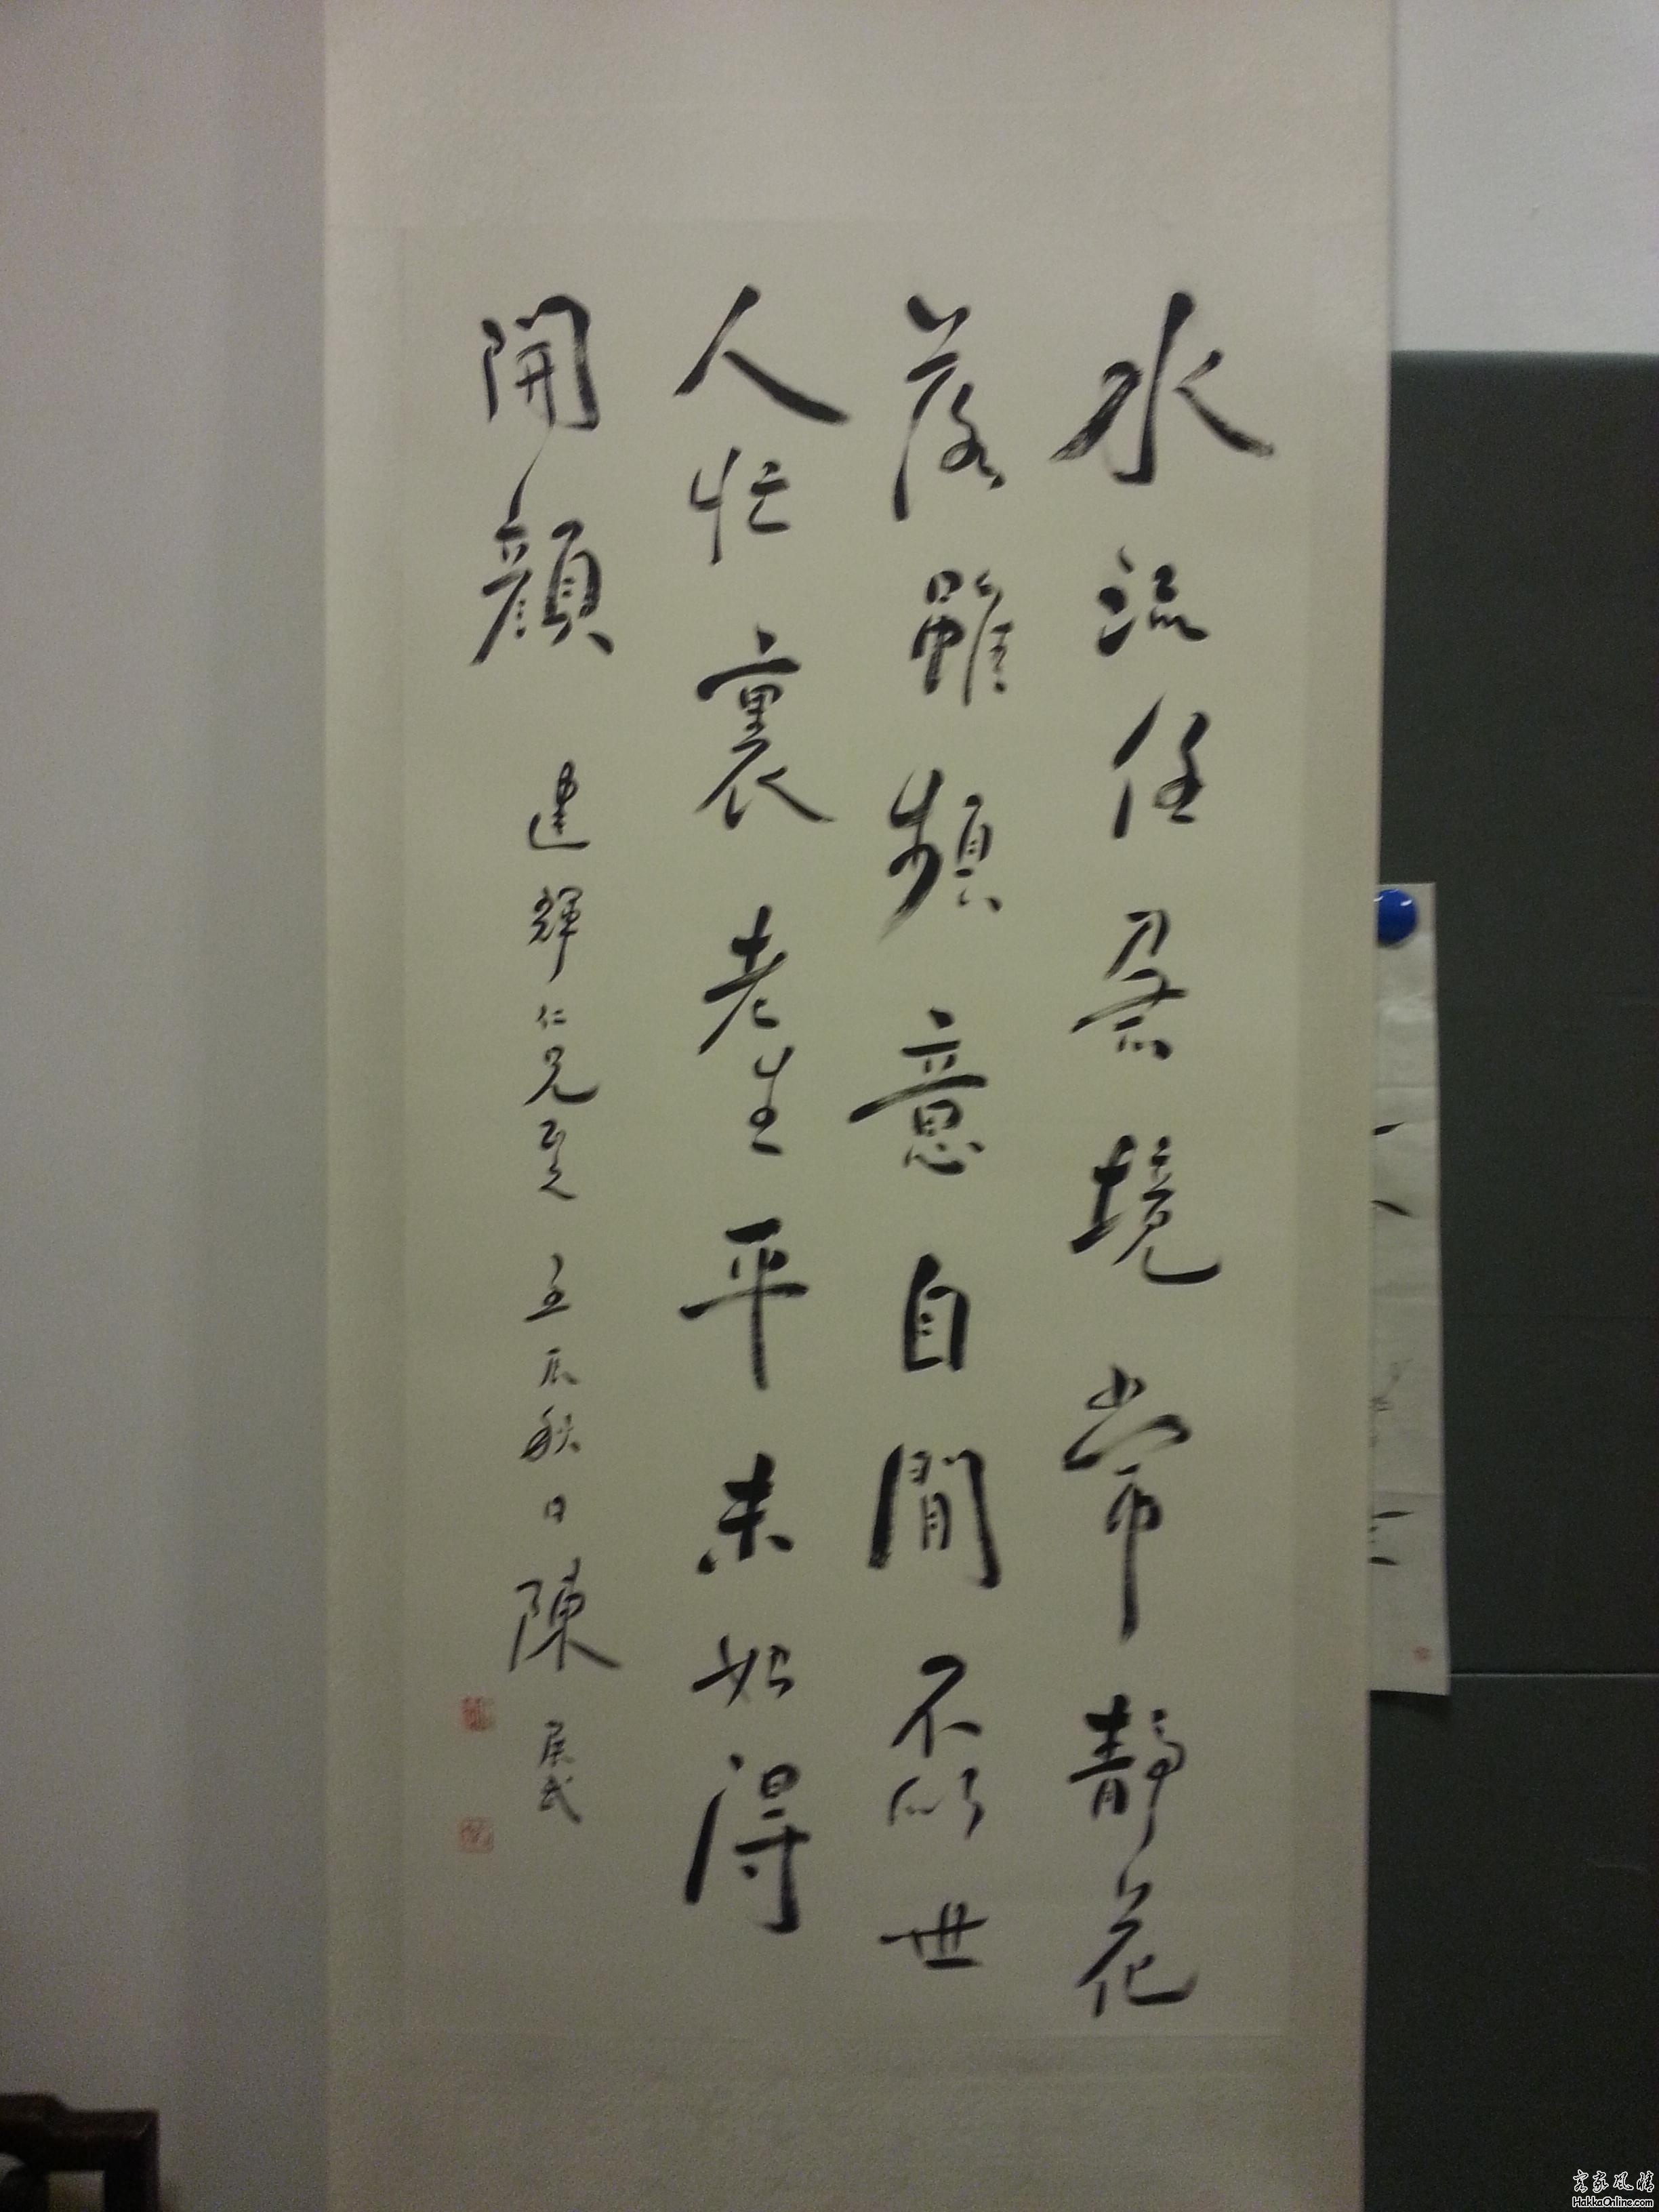 水流任急境常靜花
落雖頻意自閒不似世
人忙裏老生平未始得
開顏
建輝仁兄正之 壬辰秋日陳
客家風情
HakkaOnline.com